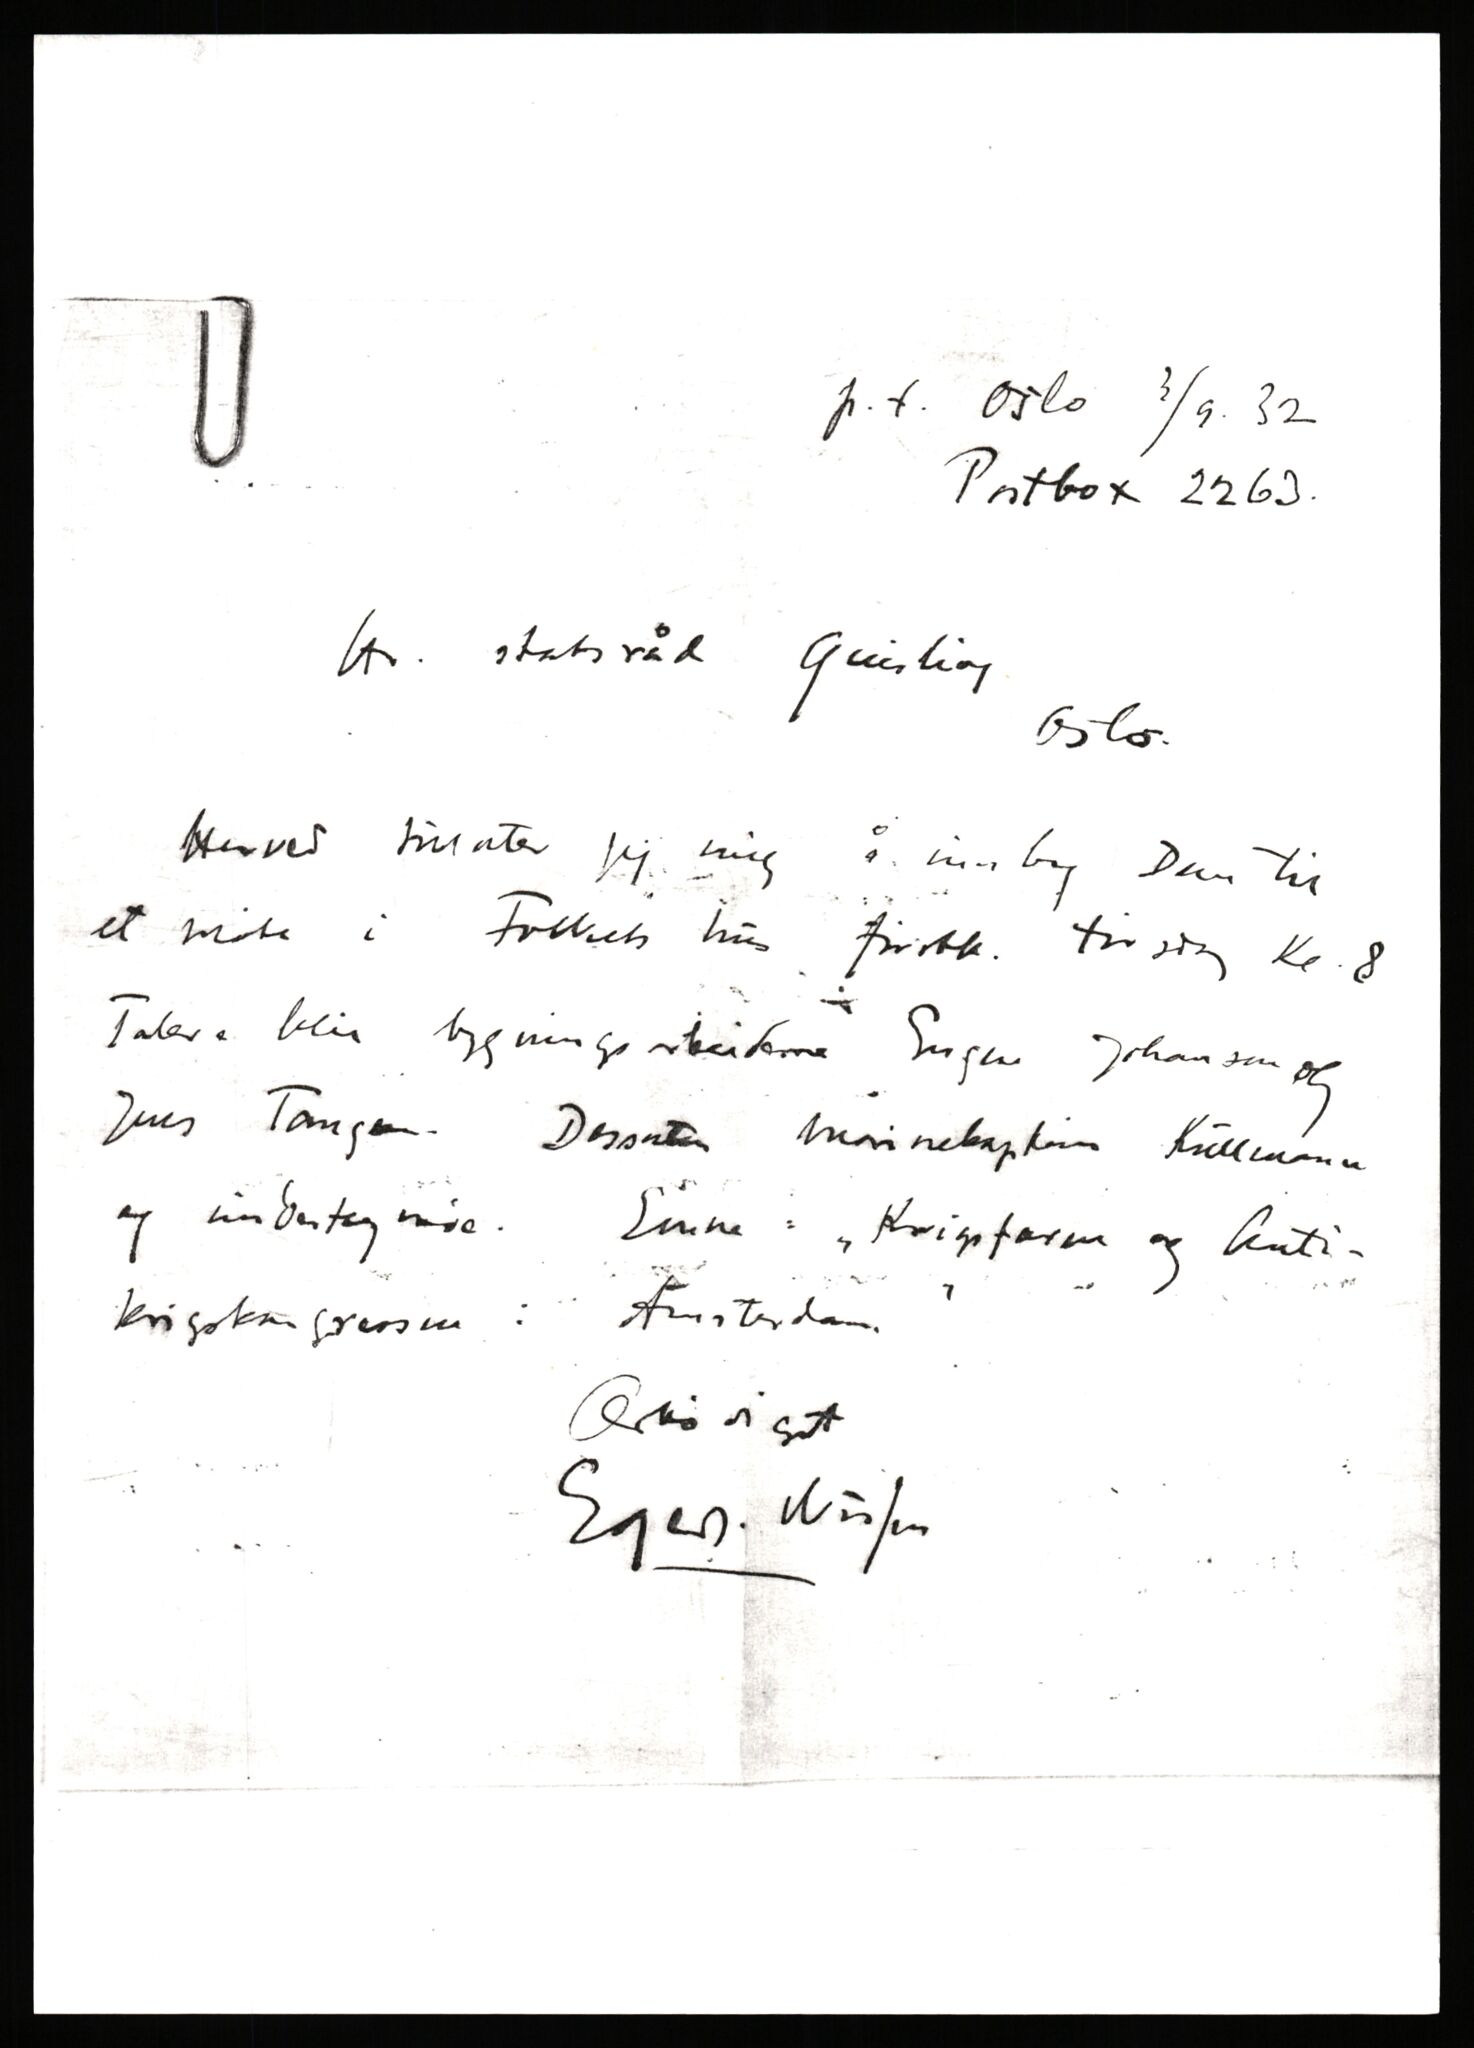 p.t. Oslo 3/9. 32
Postbox 2263.
Hr. statsråd Quisling
Oslo.
Herved tillater jeg mig å innby Dem til
et møte i Folkets hus førstk. tirsdag kl. 8
Talere blir bygningsarbeiderne Eugen Johansen og
Jens Tangen. Dessuten marinekaptein Kullmann
og undertegnede. Emne: „Krigsfaren og Anti-
krigskongressen i Amsterdam."
Ærbødigst